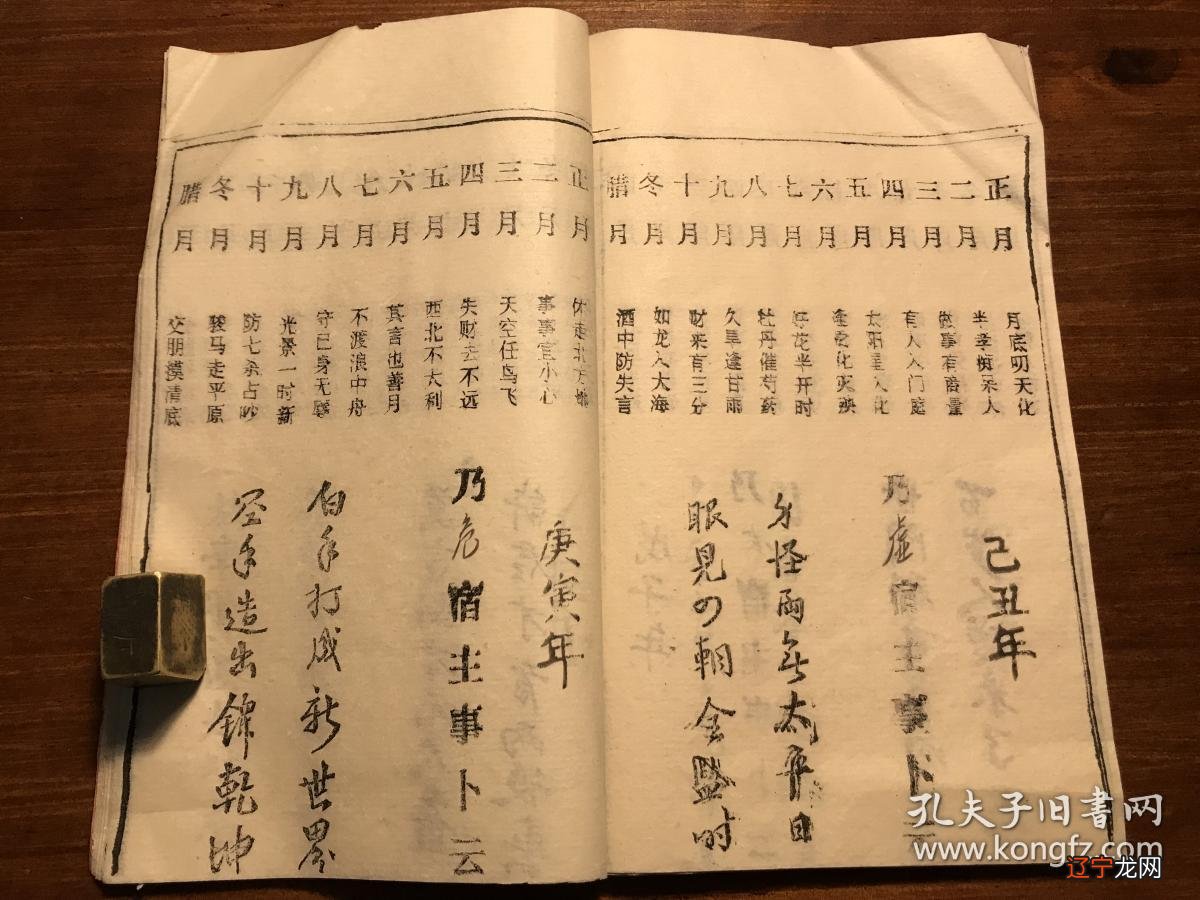 正月 月底叨天化
二月 半季痴呆人
三月 做事有商量
四月 有人入门庭
五月 太阳星入化
六月 逢受化灾殃
七月 好花半开时
八月 牡丹催芍药
九月 久旱逢甘雨
十月 财来有三分
冬月 如龙入大海
腊月 酒中防失言
己丑年
乃虚宿主事卜云
怪雨 太平日
眼见 朝金 时
正月 休走北方
二月 事事宜小心
三月 天空任鸟飞
四月 失财去不远
五月 西北不大利
六月 其言也善月
七月 不渡浪中舟
八月 守己身无辱
九月 光景一时新
十月 防七杀占吵
冬月 骏马走平原
腊月 交朋摸清底
庚寅年
乃危宿主事卜云
白手打成新世界
空手造出锦乾坤
孔夫子旧书网
www.kongfz.com
辽宁龙网